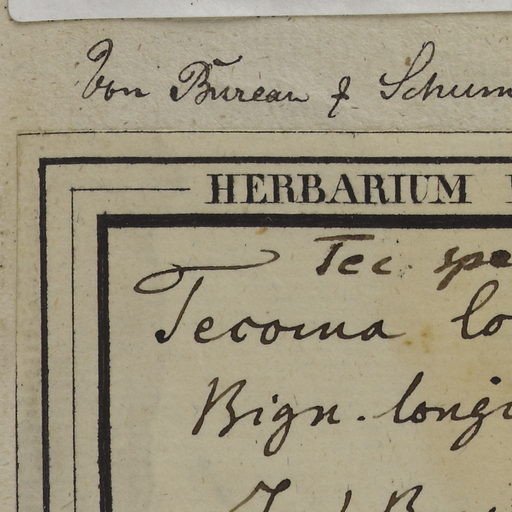 Von Bureau & Schum
HERBARIUM
Tec. spe
Tecoma lo
Bign. longi